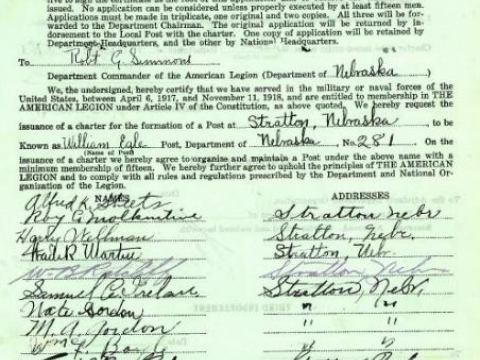 issued. No application can be considered unless properly executed by at least fifteen men.
Applications must be made in triplicate, one original and two copies. All three will be for-
warded to the Department Chairman. The original application will be returned by in-
dorsement to the Local Post with charter. One copy of application will be retained by
Department Headquarters, and the other by National Headquarters.
To Robt G. Simmons
Department Commander of the American Legion (Department of Nebraska)
We, the undersigned, hereby certify that we have served in the military or naval forces of the
United States, between April 6, 1917, and November 11, 1918, and are entitled to membership in THE
AMERICAN LEGION under Article IV of the Constitution, as above quoted. We hereby request the
issuance of a charter for the formation of a Post at Stratton, Nebraska to be
Known as William Egle Post, Department of Nebraska, No. 281 On the
(Name of Post)
issuance of a charter we hereby agree to organise and maintain a Post under the above name with a
minimum membership of fifteen. We hereby further agree to uphold the principles of THE AMERICAN
LEGION and to comply with all rules and regulations prescribed by the Department and National Or-
ganization of the Legion.
NAMES ADDRESSES
Alfred
Roy G. Stratton Nebr
Harry Wellman Stratton, Nebr.
Martin Stratton, Nebr.
Stratton
Samuel Stratton, Nebr.
Nate Gordon " "
M. A. Gordon " "
Wm " "